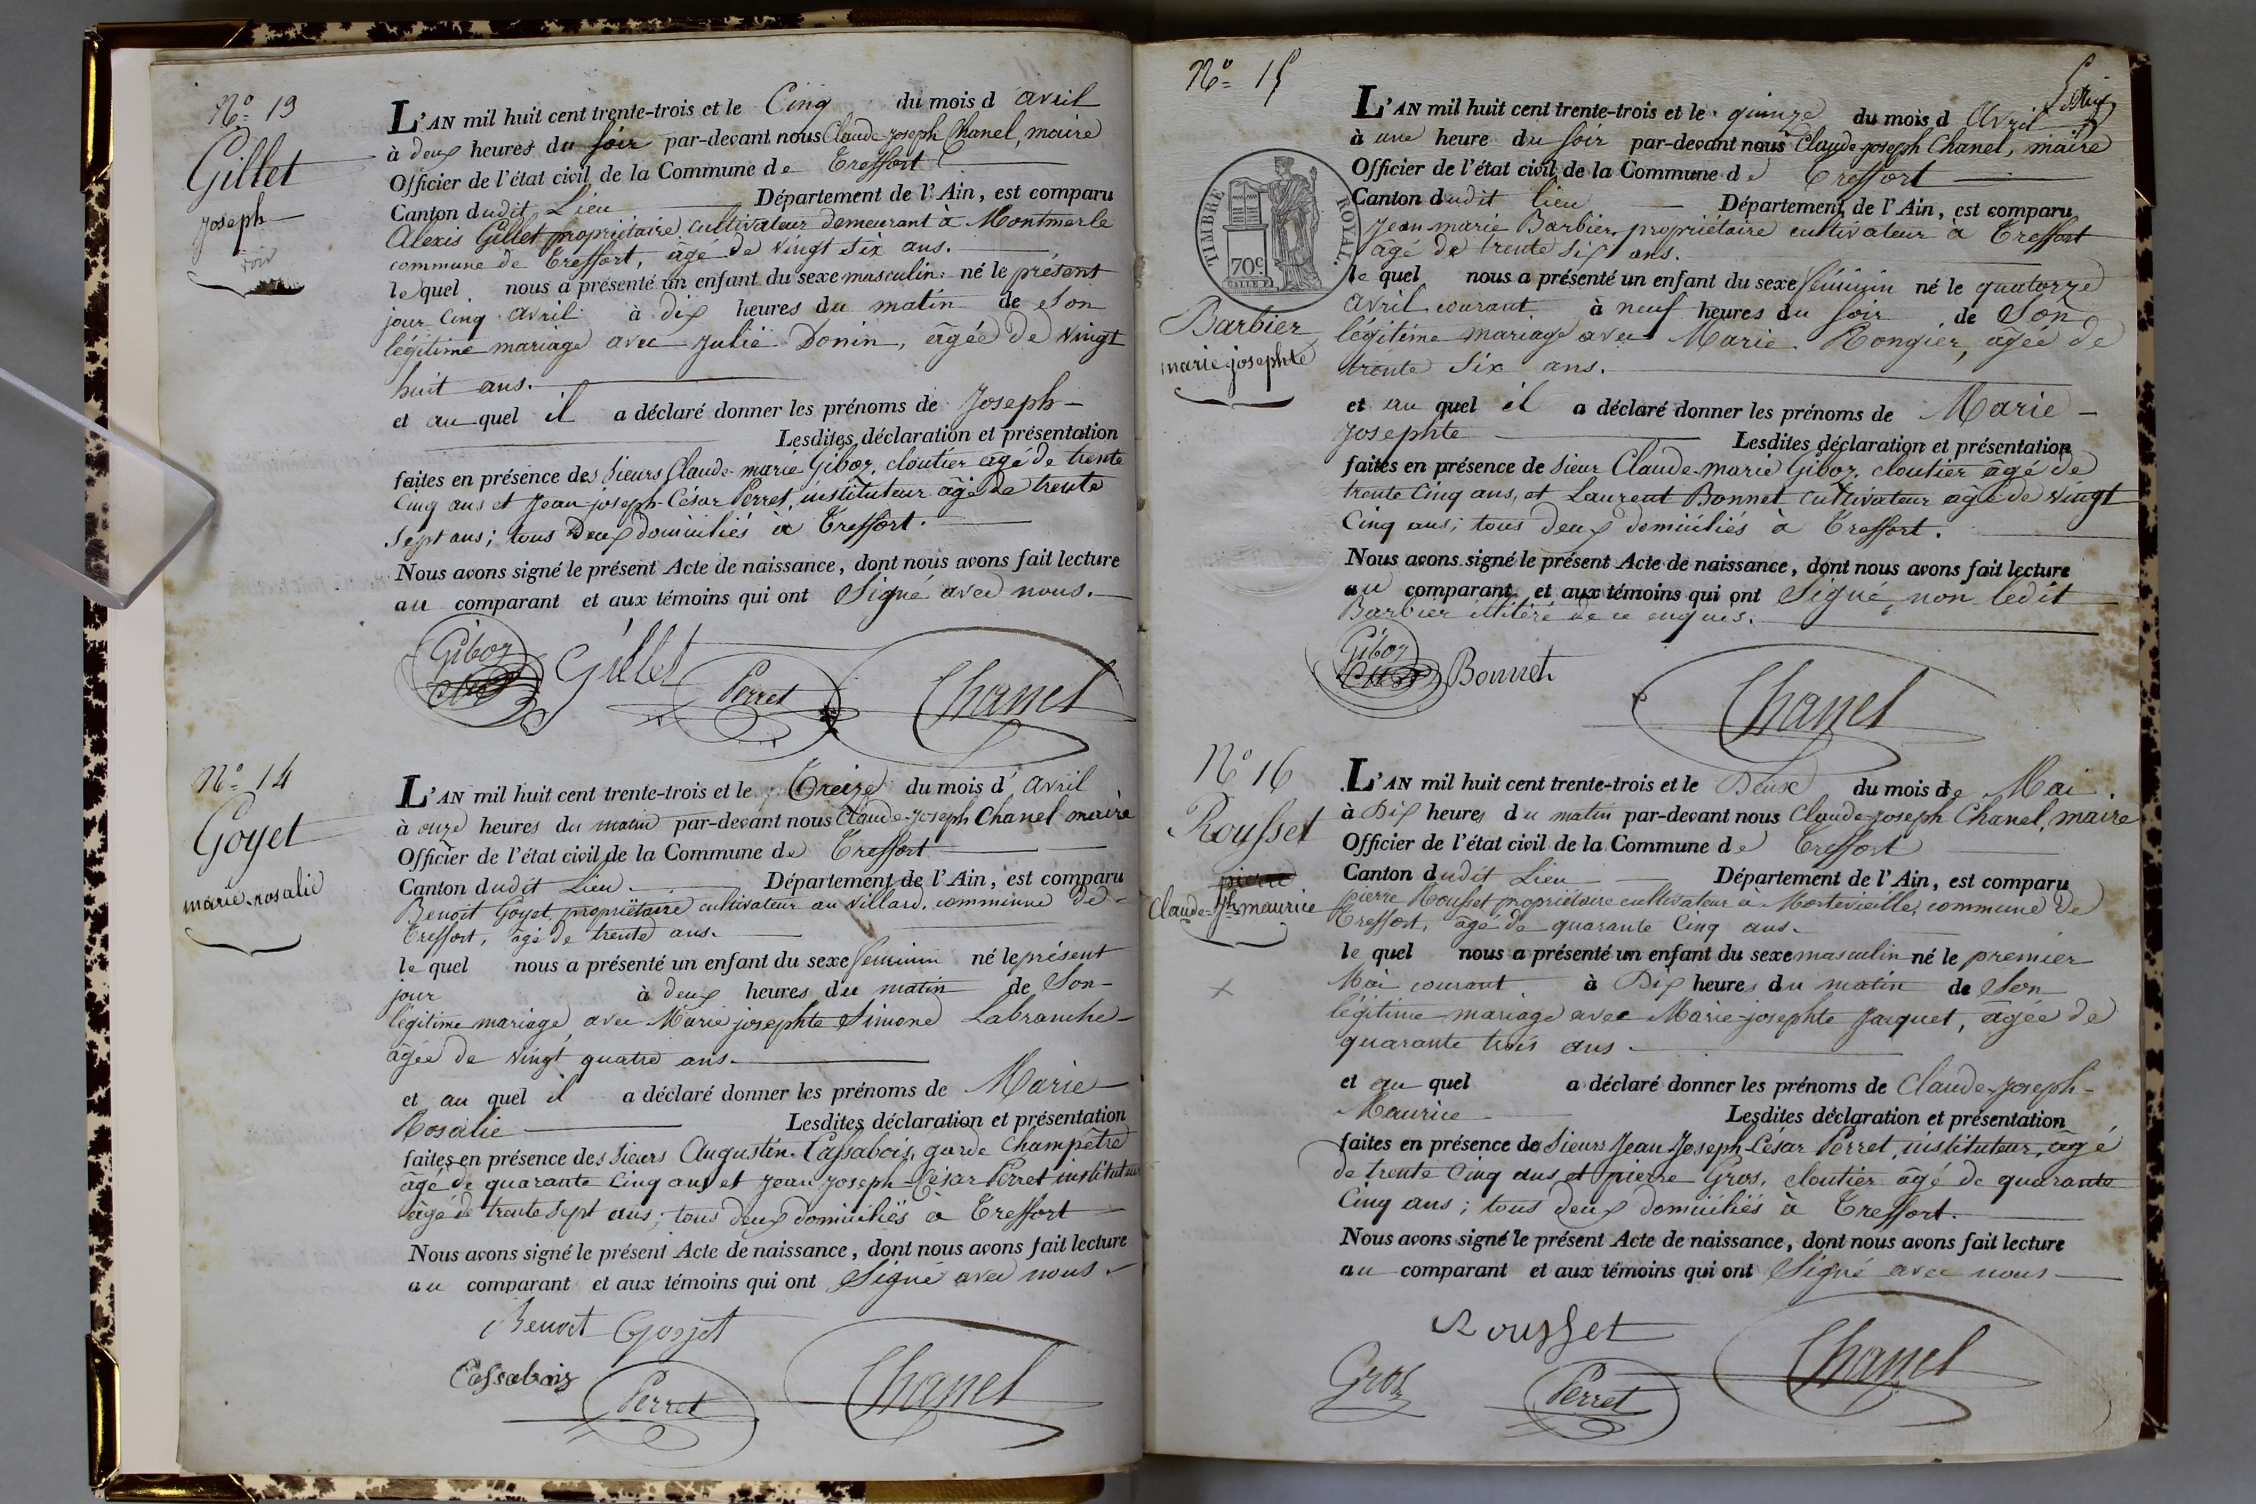 No. 13
Gillet
Joseph
voir
L'AN mil huit cent trente-trois et le Cinq du mois d avril
à deux heures du soir par-devant nous Claude-joseph Chanel, maire
Officier de l'état civil de la Commune de Treffort
Canton dudit Lieu Département de l'Ain, est comparu
Alexis Gillet propriétaire cultivateur demeurant à Montmerle
commune de Treffort, âgé de vingt six ans.
le quel nous a présenté un enfant du sexe masculin né le présent
jour cinq avril à dix heures du matin de son
légitime mariage avec Julie Donin, âgée de vingt
huit ans.
et au quel il a déclaré donner les prénoms de Joseph
Lesdites déclaration et présentation
faites en présence des sieurs Claude-marie Giboz, cloutier âgé de trente
cinq ans et Jean-joseph-César Perret, instituteur âgé de trente
sept ans; tous deux domiciliés à Treffort.
Nous avons signé le présent Acte de naissance, dont nous avons fait lecture
au comparant et aux témoins qui ont Signé avec nous.
Giboz Gillet Perret Chanel
No. 14
Goyet
marie-rosalie
L'AN mil huit cent trente-trois et le Treize du mois d' avril
à onze heures du matin par-devant nous Claude-Joseph Chanel maire
Officier de l'état civil de la Commune de Treffort
Canton dudit Lieu. Département de l'Ain, est comparu
Benoit Goyet, propriètaire cultivateur au villard, commune de
Treffort, âgé de trente ans.
le quel nous a présenté un enfant du sexe féminin né le présent
jour à deux heures du matin de Son
légitime mariage avec Marie josephte Simone Labranche
âgée de vingt quatre ans.
et au quel il a déclaré donner les prénoms de Marie
Rosalie Lesdites déclaration et présentation
faites en présence des sieurs Augustin Cassabois, garde champêtre
âgé de quarante cinq ans et Jean Joseph-César Perret instituteur
âgé de trente sept ans; tous deux domiciliés à Treffort
Nous avons signé le présent Acte de naissance, dont nous avons fait lecture
au comparant et aux témoins qui ont Signé avec nous.
Benoit Goyet
Cassabois Perret Chanel
No. 15
TIMBRE ROYAL.
70c
Barbier
marie-josephte
L'AN mil huit cent trente-trois et le quinze du mois d Avril
à une heure du soir par-devant nous Claude-joseph Chanel, maire
Officier de l'état civil de la Commune de Treffort
Canton dudit lieu Département de l'Ain, est comparu
Jean-marie Barbier, propriétaire cultivateur à Treffort
âgé de trente six ans.
le quel nous a présenté un enfant du sexe féminin né le quatorze
avril courant à neuf heures du soir de Son
légitime mariage avec Marie Rongier, âgée de
trente six ans.
et au quel il a déclaré donner les prénoms de Marie
Josephte Lesdites déclaration et présentation
faites en présence de sieur Claude-marie Giboz cloutier âgé de
trente cinq ans, et Laurent Bonnet cultivateur âgé de vingt
cinq ans; tous deux domiciliés à Treffort.
Nous avons signé le présent Acte de naissance, dont nous avons fait lecture
au comparant et aux témoins qui ont Signé, non ledit
Barbier illitéré de ce enquis.
Giboz Bonnet
Chanel
No 16
Rousset
pierre
Claude-Jh-maurice
L'AN mil huit cent trente-trois et le Deux du mois de Mai
à Dix heures du matin par-devant nous Claude-joseph Chanel, maire
Officier de l'état civil de la Commune de Treffort
Canton dudit Lieu Département de l'Ain, est comparu
pierre Rousset propriétaire cultivateur à Mortevieille, commune de
Treffort, âgé de quarante cinq ans.
le quel nous a présenté un enfant du sexe masculin né le premier
Mai courant à Dix heures du matin de Son
légitime mariage avec Marie-josephte Jacquet, âgée de
quarante trois ans
et au quel a déclaré donner les prénoms de Claude-Joseph-
Maurice Lesdites déclaration et présentation
faites en présence des Sieurs Jean Joseph-César Perret, instituteur, âgé
de trente cinq ans et pierre Gros, cloutier âgé de quarante
cinq ans; tous deux domiciliés à Treffort.
Nous avons signé le présent Acte de naissance, dont nous avons fait lecture
au comparant et aux témoins qui ont Signé avec nous
Rousset
Gros Perret Chanel